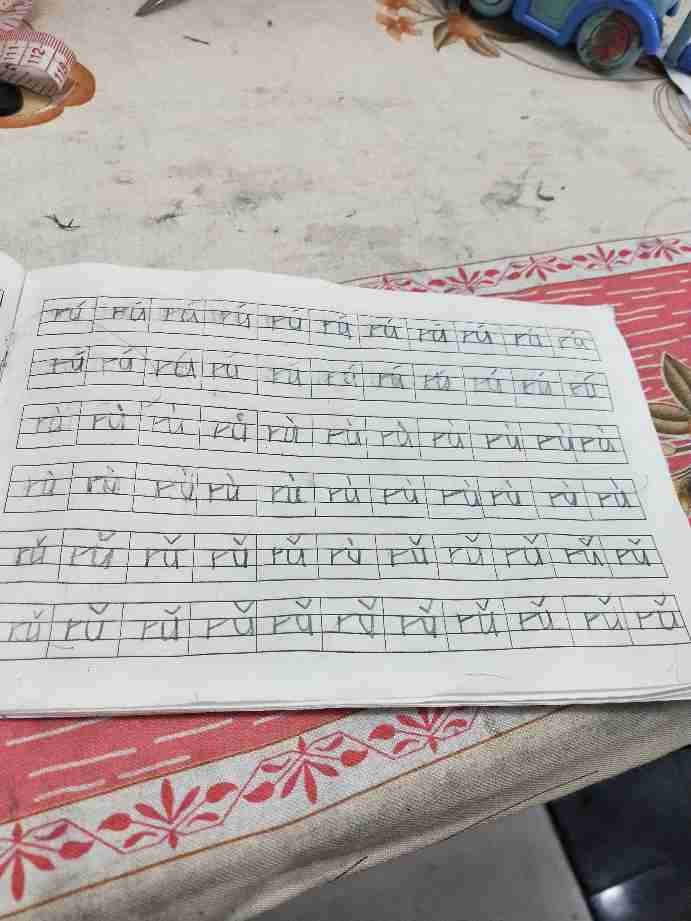 rú rú rú rú rú rú rú rú rú rú rú
rú rú rú rú rú rú rú rú rú rú rú
rù rù rù rù rù rù rù rù rù rù rù
rù rù rù rù rù rù rù rù rù rù rù
rǔ rǔ rǔ rǔ rǔ rù rǔ rǔ rǔ rǔ rǔ
rǔ rǔ rǔ rǔ rǔ rǔ rǔ rǔ rǔ rǔ rǔ